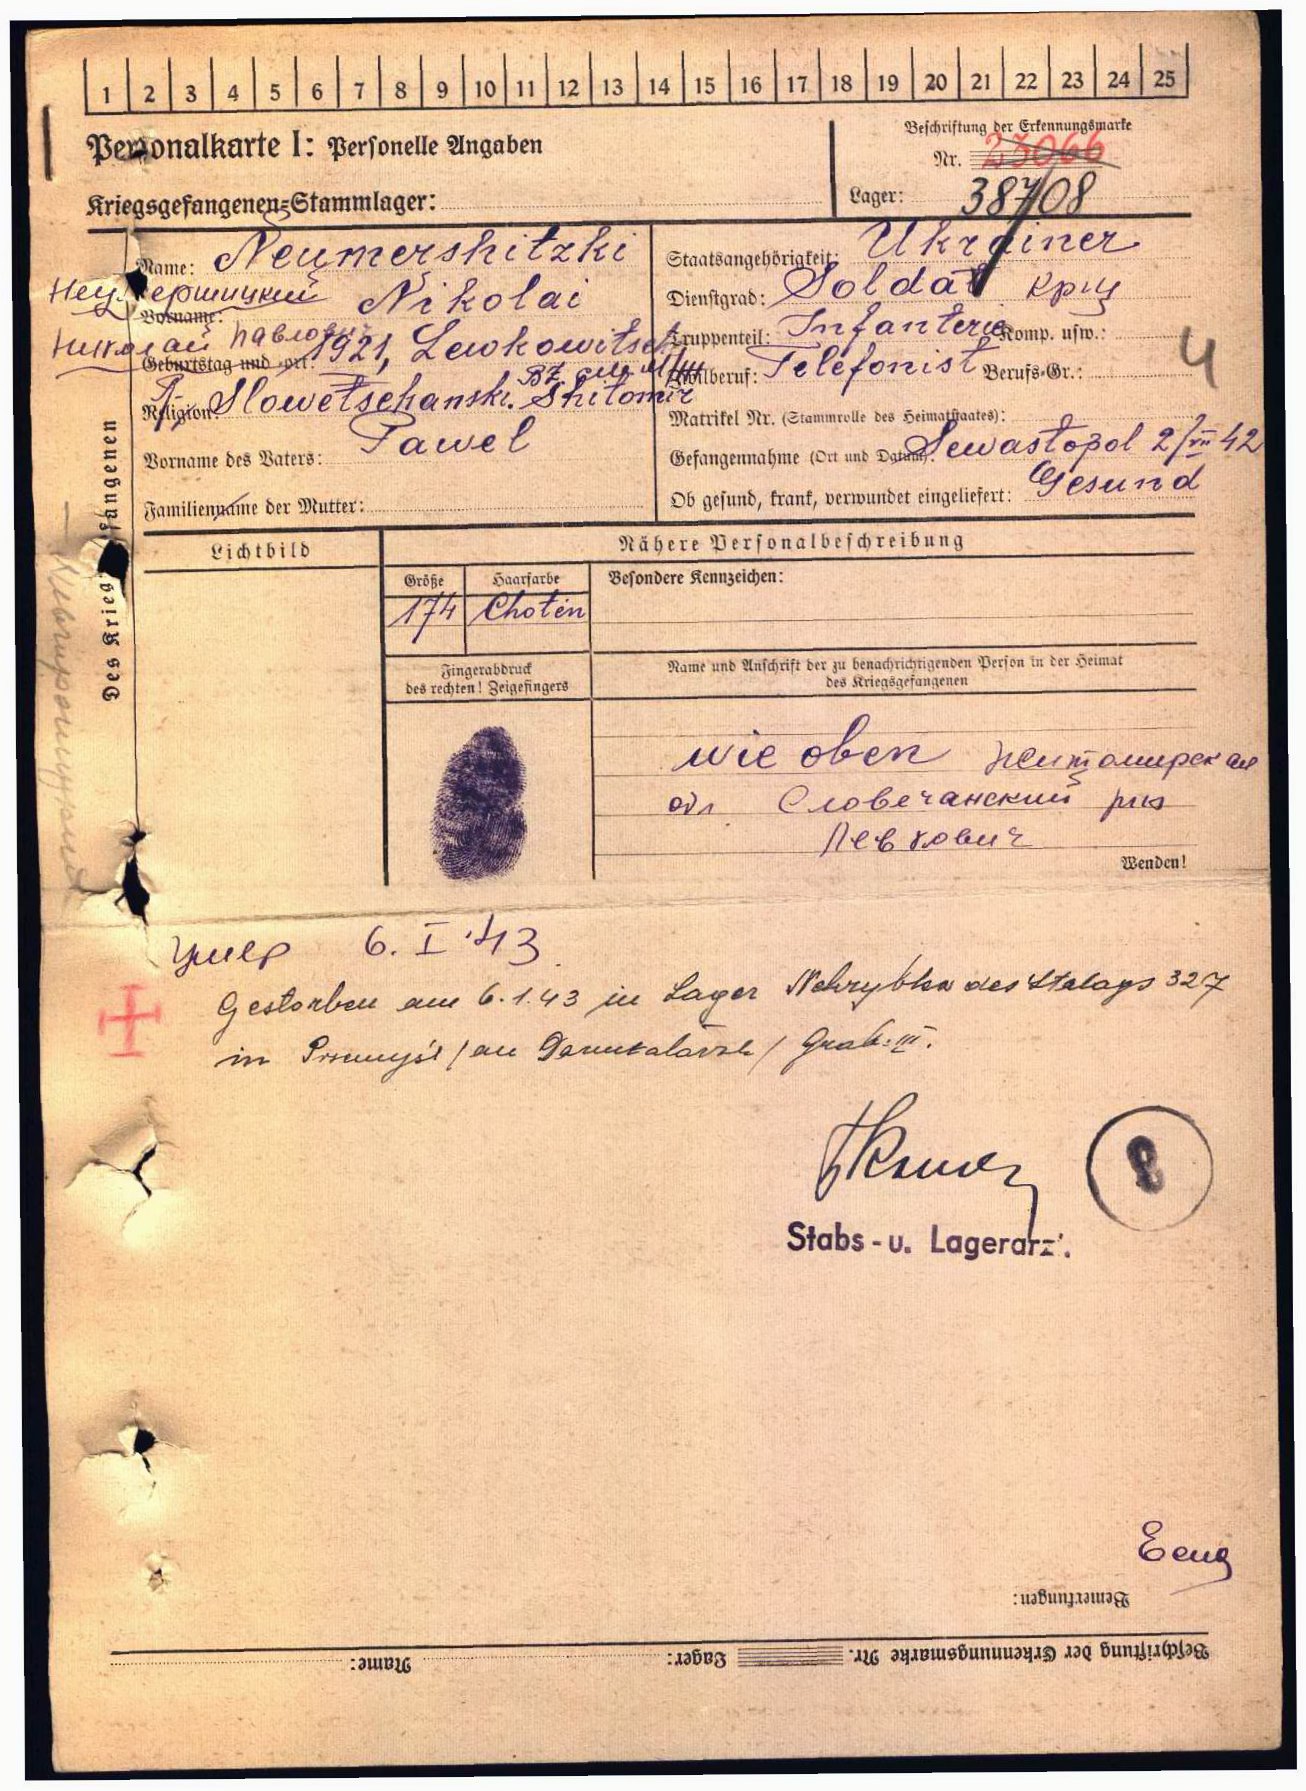 1 2 3 4 5 6 7 8 9 10 11 12 13 14 15 16 17 18 19 20 21 22 23 24 25
Personalkarte I: Personelle Angaben
Beschriftung der Erkennungsmarke
Nr. 23066
Kriegsgefangenen-Stammlager:
Lager: 38708
Des Kriegsgefangenen
Name: Neumershitzki
Неумершицкий
Vorname: Nikolai
Николай Павлович
Geburtstag und -ort: 1921, Lewkowitsch
Religion: Slowetschanski. Shitomir
Vorname des Vaters: Pawel
Familienname der Mutter:
Staatsangehörigkeit: Ukrainer
Dienstgrad: Soldat крц
Truppenteil: Infanterie Komp. usw.:
Zivilberuf: Telefonist Berufs-Gr.: 4
Matrikel Nr. (Stammrolle des Heimatstaates):
Gefangennahme (Ort und Datum): Sewastopol 2/VII 42
Ob gesund, krank, verwundet eingeliefert: Gesund
Lichtbild
Nähere Personalbeschreibung
Größe Haarfarbe Besondere Kennzeichen:
174 Choten
Fingerabdruck
des rechten! Zeigefingers
Name und Anschrift der zu benachrichtigenden Person in der Heimat
des Kriegsgefangenen
wie oben Житомирская
обл Словечанский рик
Левкович
Wenden!
Умер 6. I 43
Gestorben am 6.1.43 in Lager Nehrybka des Stalags 327
in Przemyśl / an / Grab. III.
Stabs-u. Lagerarzt.
Bemerkungen:
Beschriftung der Erkennungsmarke Nr. Lager: Name: